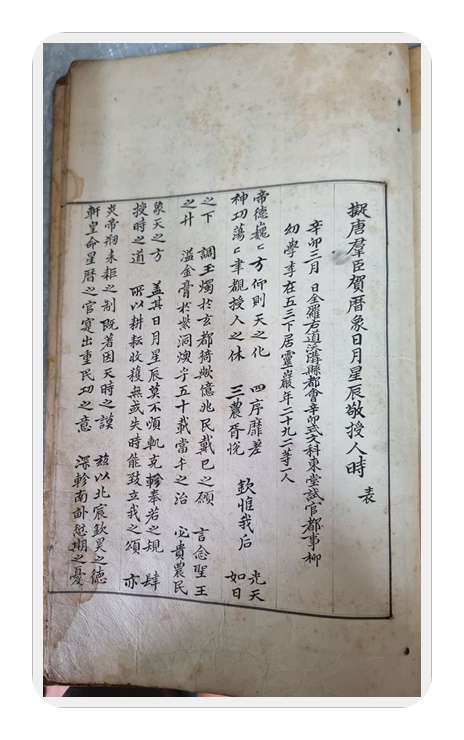 擬唐羣臣賀曆象日月星辰敬授人時 表
辛卯三月 日全羅右道 縣都會辛卯式文科東堂試官都事柳
幼學李在五三下居靈巖年二十九二等一人
帝德巍〻方仰則天之化 四序靡差
神功蕩〻聿覩授人之休 三農胥悅
欽惟我后
光天
如日
之下 調玉燭於玄都猗歟億兆民戴已之願 言念聖王
之升 溢金膏於紫洞 乎五十載當午之治 寔貴農民
象天之方 蓋其日月星辰莫不順軌克軫奉若之規 肆
授時之道 所以耕耘收穫無或失時能致立我之頌 亦
炎帝刱耒耟之制既著因天時之謨 茲以北宸欽昊之德
軒皇命星曆之官寔出重民功之意 深軫南訛愆期之憂